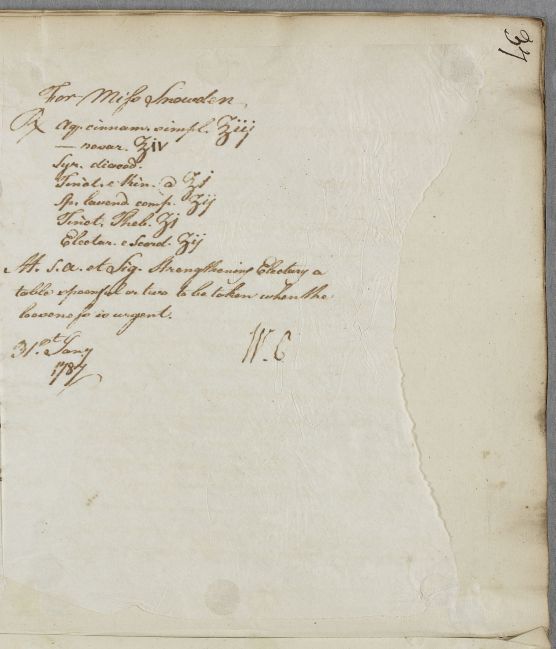 37
For Miſs Snowden
℞ Aq. cinnam. simpl. ℥iij
— rosar. ℥iv
Syr. diacod.
Tinct. e Kin. a ℥j
Sp. lavend. comp. ʒij
Tinct. Theb. ʒj
Electar. e Scord. ʒij
M. s. a. et Sig. Strengthening Electury a
table spoonful or two to be taken when the
looseneſs is urgent.
31st Jany W. C
1787